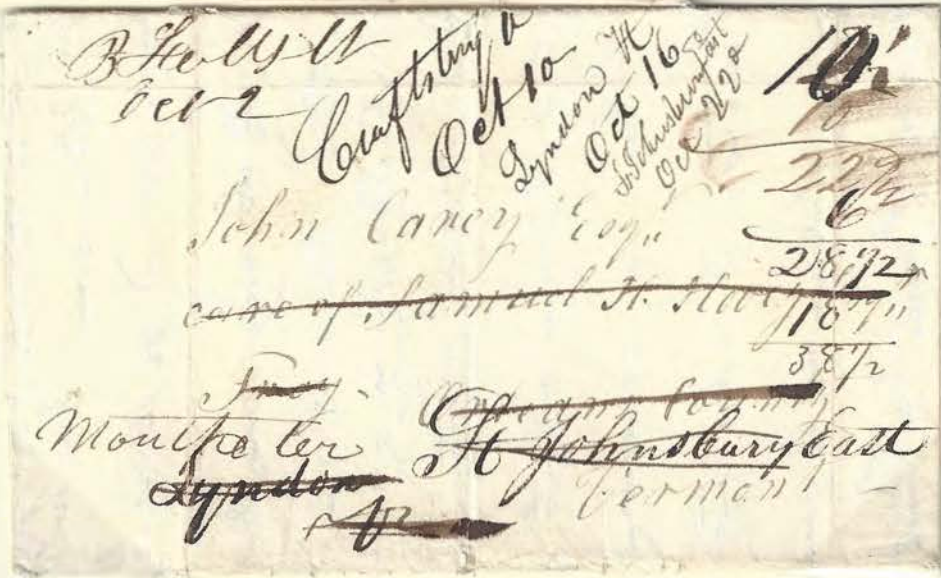 B Falls Vt
Oct 2
Craftsbury Vt
Oct 10
Lyndon Vt
Oct 16
St Johnsbury East
Oct 22
10
22 1/2
6
28 1/2
10
38 1/2
John Carey Esq.
care of Samuel H.
Troy
Orleans County
Montpelier
St Johnsbury East
Lyndon
Vermont
Vt